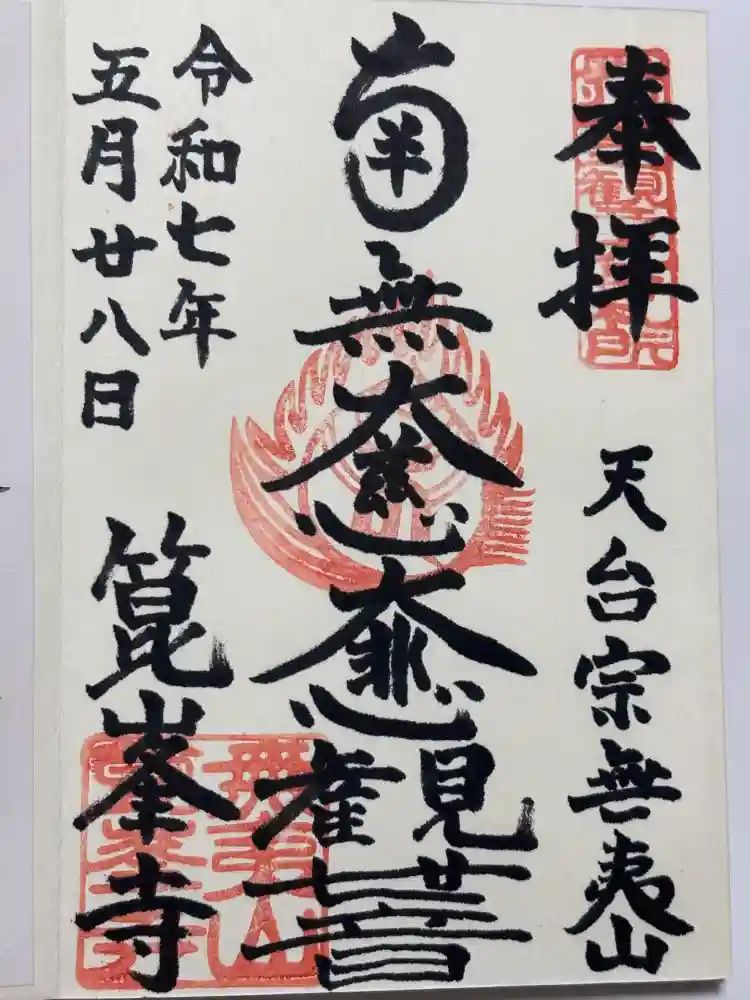 奉拝
天台宗無夷山
南無大慈大悲觀世音
令和七年
五月廿八日
箟峯寺
無夷山
箟峯寺